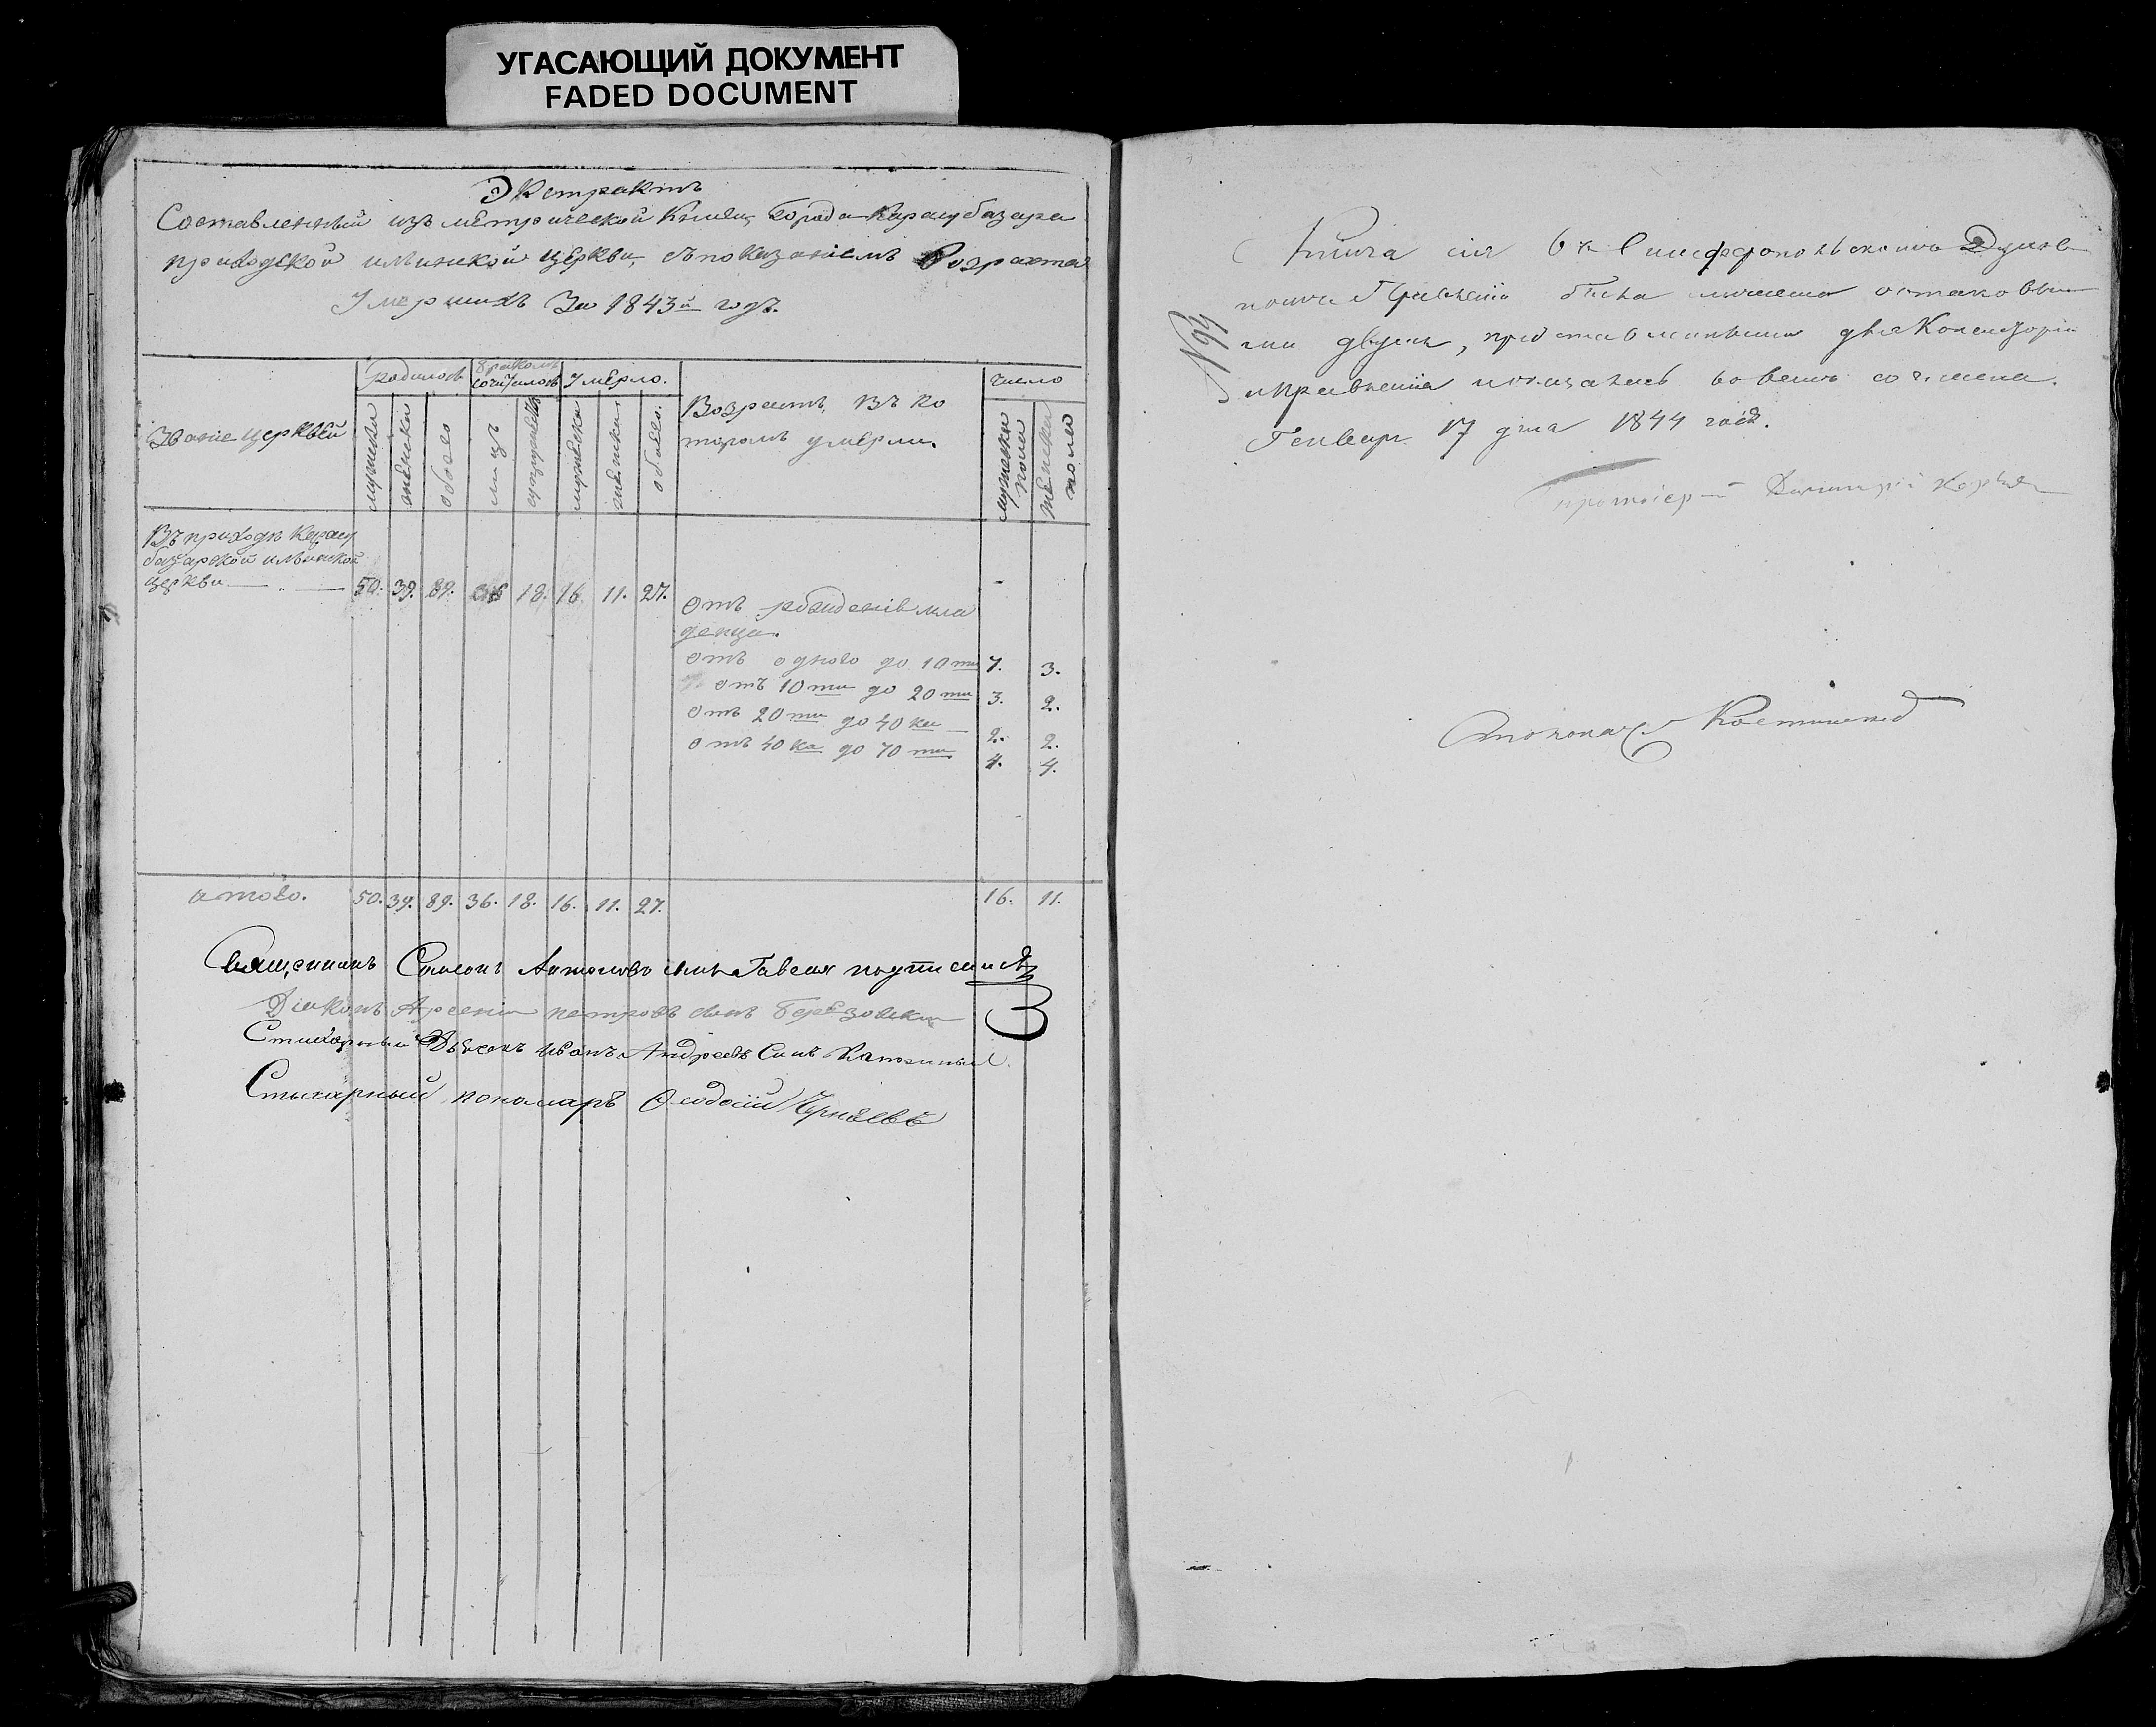 УГАСАЮЩИЙ ДОКУМЕНТ
FADED DOCUMENT
Экстрактъ
Составленный изъ метрической Книги, Города Карасубазара
приходской илинской церкви, съ показаніемъ Возраста
Умершихъ За 1843й годъ.
Званіе церквей
Родилось
мужеска
женска
обоего
Бракомъ сочиталось
лицъ
супружествъ
Умерло.
мужеска
женска
обоего.
Возрастъ, въ ко
торомъ умерли.
число
мужеска пола
женска пола
Въ приходѣ Карасу
базарской илинской
церкви 50. 39. 89. 36 18. 16. 11. 27.
Отъ рожденія мла
денца.
Отъ одного до 10ти 7. 3.
отъ 10ти до 20ти 3. 2.
Отъ 20ти до 40ка 2. 2.
отъ 40ка до 70ти 4. 4.
итого. 50. 39. 89. 36. 18. 16. 11. 27. 16. 11.
Священникъ Симеонъ Антоновъ сынъ подписался
Діаконъ Арсеній петровъ сынъ Березовски
Стихарный Дьячекъ Иванъ Андреевъ Синъ
Стихарный пономаръ Ѳеодосій Черняевъ
Книга сія въ Симферопольскомъ Духов
номъ Правленіи была съ таковы
ми двумя, представленными для Консисторіи
и Правленія и оказалась во всемъ сходна.
Генваря 17 дня 1844 года.
№ 94
протоіерей Димитрій
Столонач.